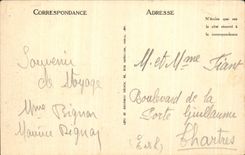 CORRESPONDANCE
ADRESSE
N'écrire que sur
le côté réservé à
la correspondance
Souvenir
de Voyage
Mme Bignon
Maurice Bignon
M. et Mme Fiant
Boulevard de la
Porte Guillaume
Chartres
(E&L)